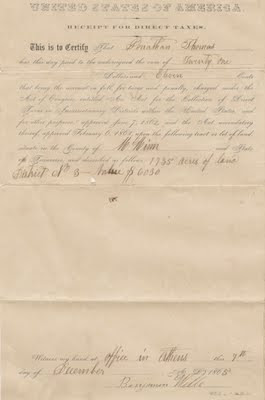 UNITED STATES OF AMERICA
RECEIPT FOR DIRECT TAXES.
This is to Certify, That Jonathan Thomas
has this day paid to the undersigned the sum of Twenty One
Dollars and Cents
that being the amount in full for taxes and penalty, charged under the
Act of Congress, entitled "An Act for the Collection of Direct
Taxes in Insurrectionary Districts within the United States, and
for other purposes," approved June 7, 1862, and the Act amendatory
thereof, approved February 6, 1863, upon the following tract or lot of land
situate in the County of McMinn and State
of Tennessee, and described as follows: 1735 acres of land
District No 3 Value $6030
Witness my hand at office in Athens this 7th
day of December 1865
Benjamin